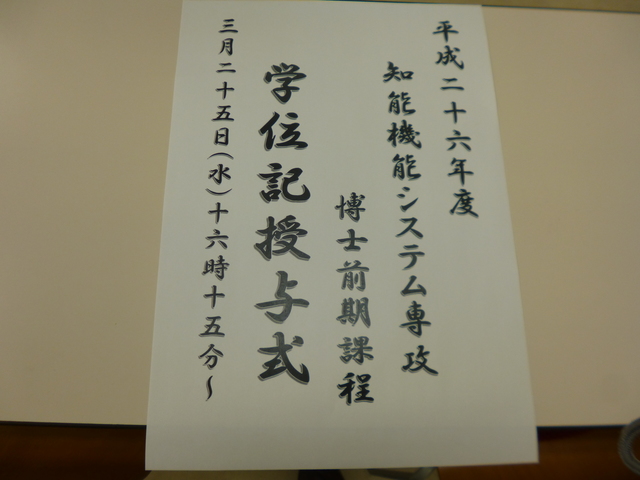 平成二十六年度
知能機能システム専攻
博士前期課程
学位記授与式
三月二十五日(水)十六時十五分~